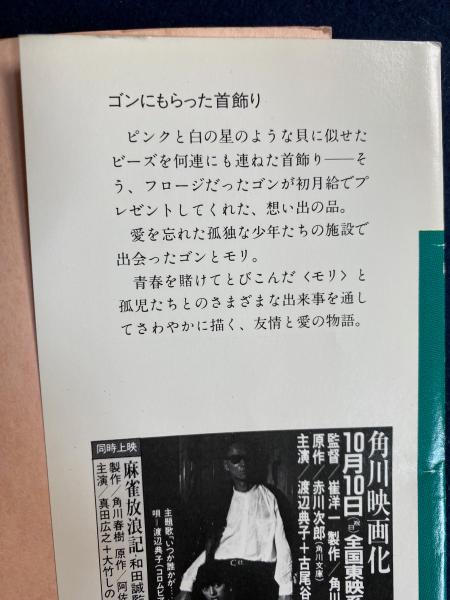 ゴンにもらった首飾り
ピンクと白の星のような貝に似せた
ビーズを何連にも連ねた首飾り――そ
う、フロージだったゴンが初月給でプ
レゼントしてくれた、想い出の品。
愛を忘れた孤独な少年たちの施設で
出会ったゴンとモリ。
青春を賭けてとびこんだ〈モリ〉と
孤児たちとのさまざまな出来事を通し
てさわやかに描く、友情と愛の物語。
角川映画化
10月10日(祝)全国東映系
監督/崔洋一 製作/角川
原作/赤川次郎(角川文庫)
主演/渡辺典子+古尾谷
主題歌、「いつか誰かが…」
唄=渡辺典子(コロムビ
同時上映
麻雀放浪記 和田誠監
製作/角川春樹 原作/阿佐
主演/真田広之+大竹しの